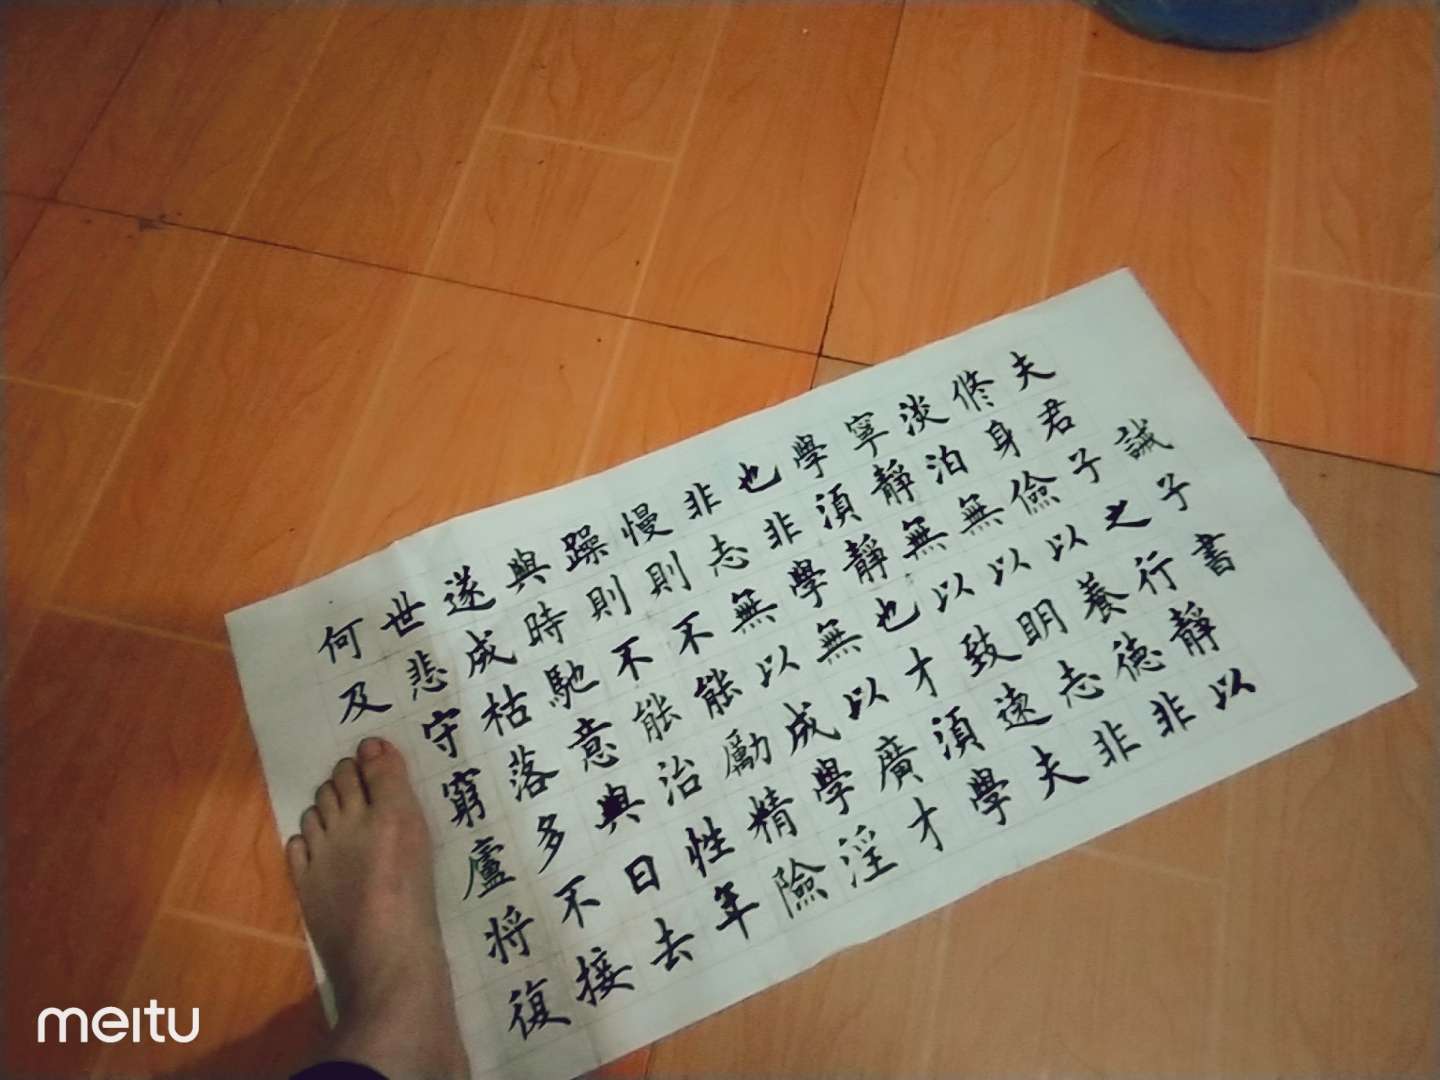 誡子書
夫君子之行靜以
修身儉以養德非
淡泊無以明志非
寧靜無以致遠夫
學須靜也才須學
也非學無以廣才
非志無以成學淫
慢則不能勵精險
躁則不能治性年
與時馳意與日去
遂成枯落多不接
世悲守窮廬將復
何及
meitu